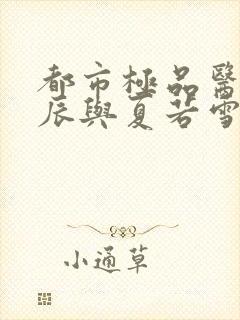 都市極品醫
辰與夏若雪
小通草